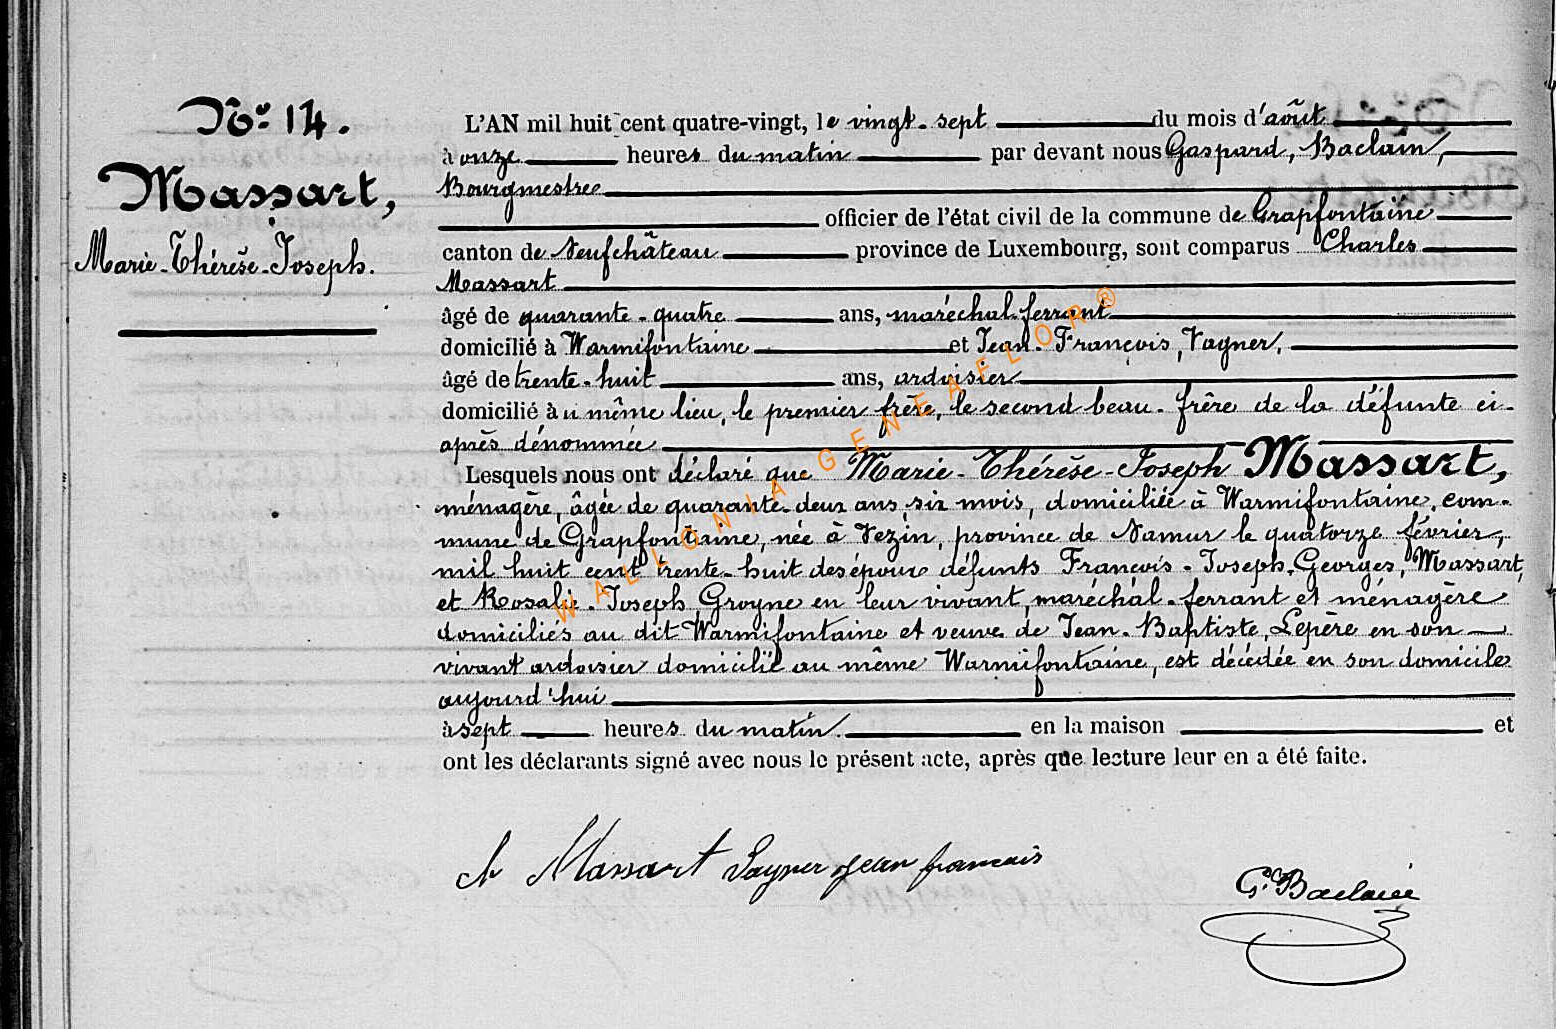 N° 14.
Massart,
Marie-Thérèse-Joseph.
L'AN mil huit cent quatre-vingt, le vingt-sept du mois d'août
à onze heures du matin par devant nous Gaspard, Baclain,
Bourgmestre
officier de l'état civil de la commune de Grapfontaine
canton de Neufchâteau province de Luxembourg, sont comparus Charles
Massart
âgé de quarante-quatre ans, maréchal-ferrant
domicilié à Warmifontaine et Jean-François, Vagner,
âgé de trente-huit ans, ardoisier
domicilié au même lieu, le premier frère, le second beau-frère de la défunte ci-
après dénommée
Lesquels nous ont déclaré que Marie-Thérèse-Joseph Massart,
ménagère, âgée de quarante-deux ans six mois, domiciliée à Warmifontaine, com-
mune de Grapfontaine, née à Vezin, province de Namur le quatorze février,
mil huit cent trente-huit des époux défunts François-Joseph, Georges, Massart,
et Rosalie-Joseph, Groyne en leur vivant, maréchal-ferrant et ménagère
domiciliés au dit Warmifontaine et veuve de Jean-Baptiste, Lepère en son
vivant ardoisier domicilié au même Warmifontaine, est décédée en son domicile
aujourd'hui
à sept heures du matin. en la maison et
ont les déclarants signé avec nous le présent acte, après que lecture leur en a été faite.
Ch Massart Vagner jean francois
G. Baclain
WALLONIA GENEAFLOR®